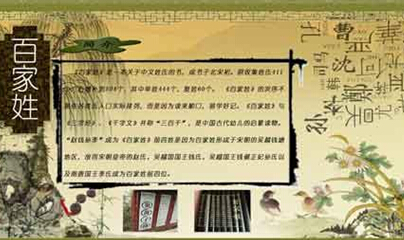 百家姓
简介
《百家姓》是一本关于中文姓氏的书，成书于北宋初。原收集姓氏411
个，后增补到504个，其中单姓444个，复姓60个。《百家姓》的次序不
是各姓氏人口实际排列，而是因为读来顺口，易学好记。《百家姓》与
《三字经》、《千字文》并称“三百千”，是中国古代幼儿的启蒙读物。
“赵钱孙李”成为《百家姓》前四姓是因为百家姓形成于宋朝的吴越钱塘
地区，故而宋朝皇帝的赵氏、吴越国国王钱氏、吴越国王钱俶正妃孙氏以
及南唐国王李氏成为百家姓前四位。
曹
沈
韩
孙